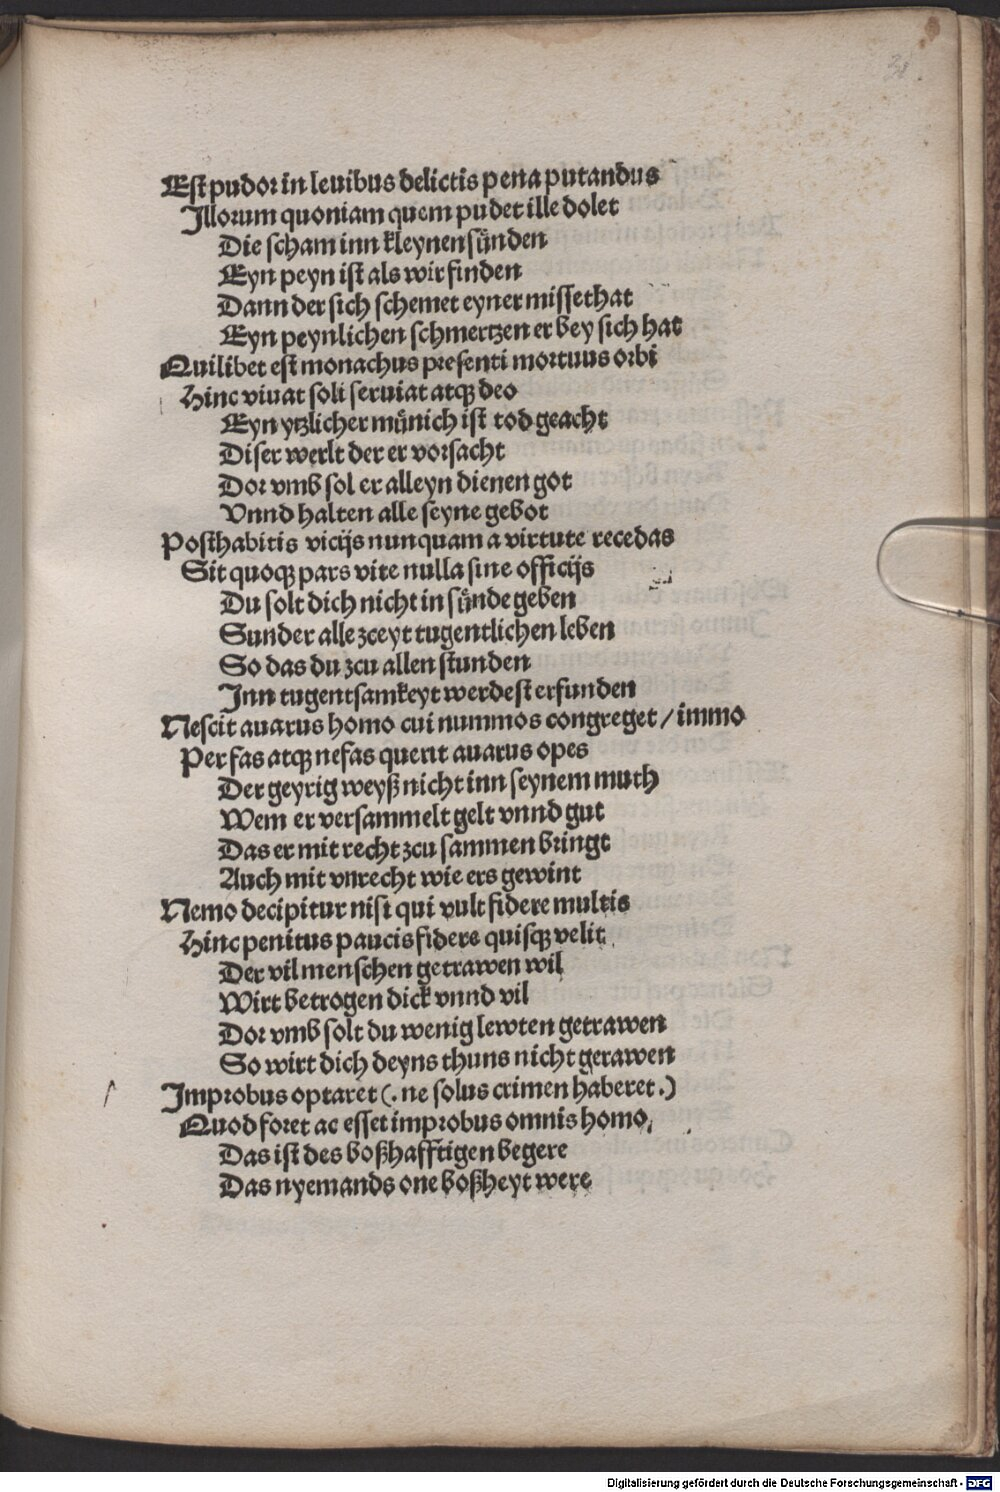 31
Est pudor in leuibus delictis pena putandus
Illorum quoniam quem pudet ille dolet
Die scham inn kleynen sünden
Eyn peyn ist als wir finden
Dann der sich schemet eyner missethat
Eyn peynlichen schmertzen er bey sich hat
Quilibet est monachus presenti mortuus orbi
Hinc viuat soli seruiat atqꝫ deo
Eyn ytzlicher münich ist tod geacht
Diser werlt der er vorsacht
Dor vmb sol er alleyn dienen got
Vnnd halten alle seyne gebot
Posthabitis vicijs nunquam a virtute recedas
Sit quoqꝫ pars vite nulla sine officijs
Du solt dich nicht in sünde geben
Sunder alle zceyt tugentlichen leben
So das du zcu allen stunden
Inn tugentsamkeyt werdest erfunden
Nescit auarus homo cui nummos congreget / immo
Per fas atqꝫ nefas querit auarus opes
Der geyrig weyß nicht inn seynem muth
Wem er versammelt gelt vnnd gut
Das er mit recht zcu sammen bringt
Auch mit vnrecht wie ers gewint
Nemo decipitur nisi qui vult fidere multis
Hinc penitus paucis fidere quisqꝫ velit
Der vil menschen getrawen wil
Wirt betrogen dick vnnd vil
Dor vmb solt du wenig lewten getrawen
So wirt dich deyns thuns nicht gerawen
Improbus optaret (. ne solus crimen haberet .)
Quod foret ac esset improbus omnis homo,
Das ist des boßhafftigen begere
Das nyemands one boßheyt were
Digitalisierung gefördert durch die Deutsche Forschungsgemeinschaft - DFG